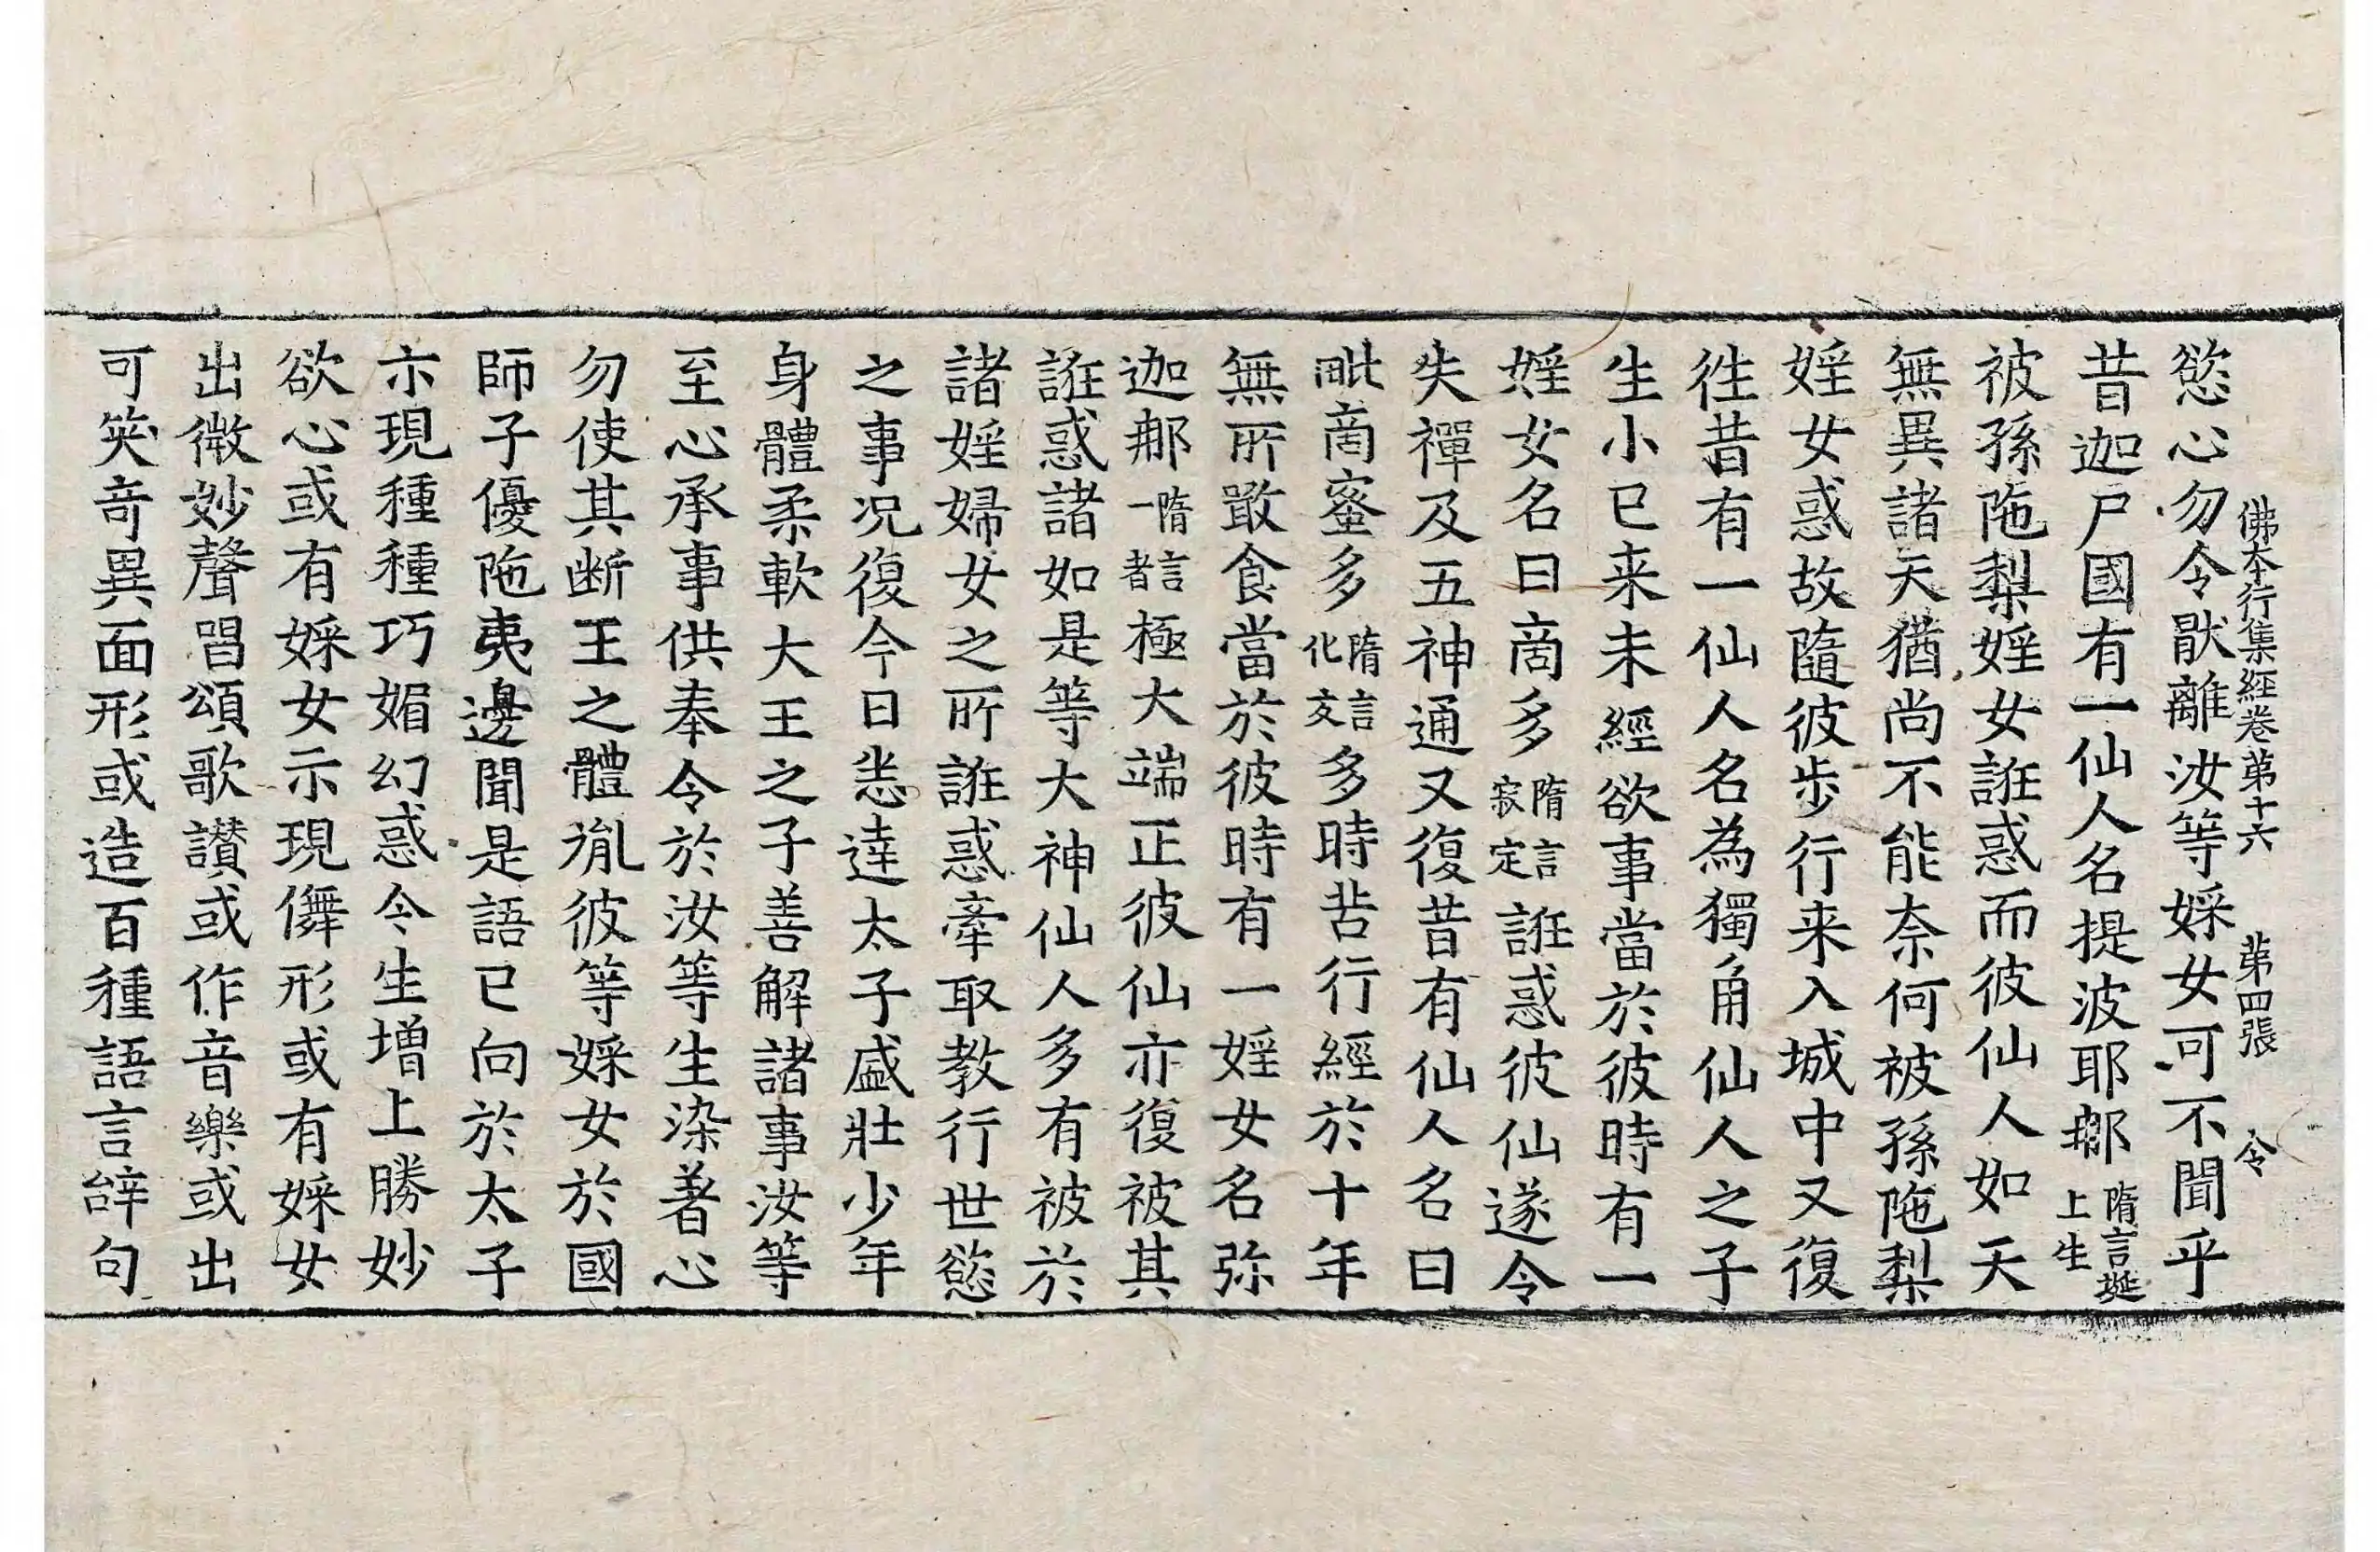 佛本行集經卷第十六 第四張 令
慾心勿令猒離汝等婇女可不聞乎
昔迦尸國有一仙人名提波耶那隋言埏上生
被孫陁梨婬女誑惑而彼仙人如天
無異諸天猶尚不能奈何被孫陁梨
婬女惑故隨彼步行来入城中又復
徃昔有一仙人名為獨角仙人之子
生小已来未經欲事當於彼時有一
婬女名曰啇多隋言寂定誑惑彼仙遂令
失禪及五神通又復昔有仙人名曰
毗啇蜜多隋言化友多時苦行經於十年
無所敢食當於彼時有一婬女名弥
迦那隋言一者極大端正彼仙亦復被其
誑惑諸如是等大神仙人多有被於
諸婬婦女之所誑惑牽取教行世慾
之事况復今日悉達太子盛壯少年
身體柔軟大王之子善解諸事汝等
至心承事供奉令於汝等生染著心
勿使其断王之體胤彼等婇女於國
師子優陁夷邊聞是語已向於太子
示現種種巧媚幻惑令生增上勝妙
欲心或有婇女示現儛形或有婇女
出微妙聲唱頌歌讃或作音樂或出
可笑奇異面形或造百種語言辝句